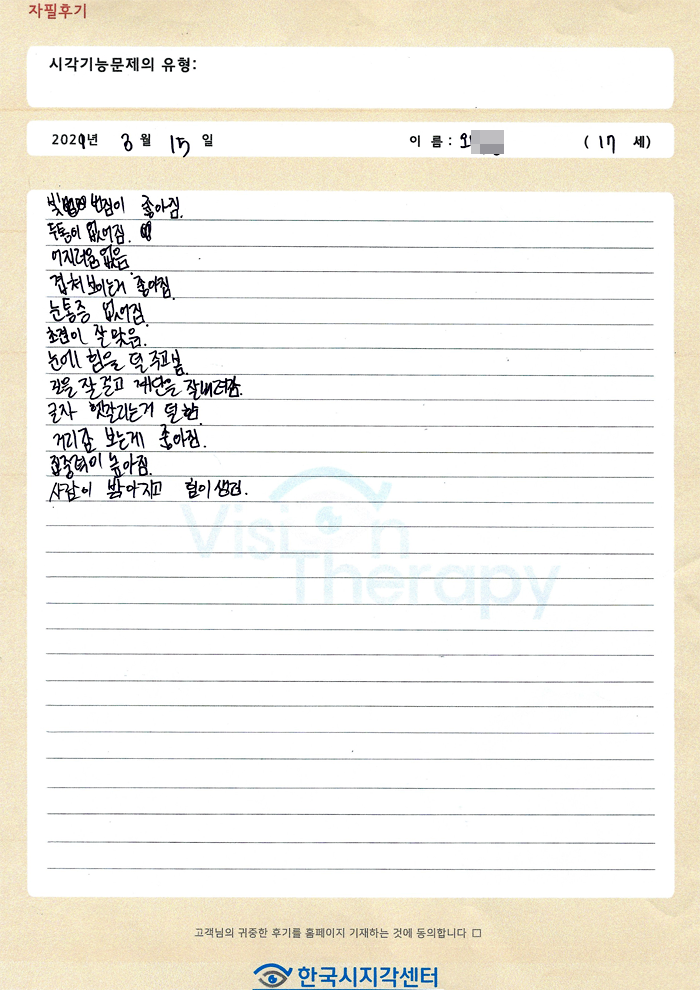 자필후기
시각기능문제의 유형:
2021년 3월 15일 이 름 : 오 ( 17 세)
빛 번짐이 좋아짐.
두통이 없어짐.
어지러움 없음.
겹쳐 보이는거 좋아짐.
눈통증 없어짐.
초점이 잘 맞음.
눈에 힘을 덜 주고 봄.
길을 잘 걷고 계단을 잘 내려감.
글자 헷갈리는거 덜함.
거리감 보는게 좋아짐.
집중력이 높아짐.
사람이 밝아지고 힘이 생김.
Vision
Therapy
고객님의 귀중한 후기를 홈페이지 기재하는 것에 동의합니다 □
한국시지각센터